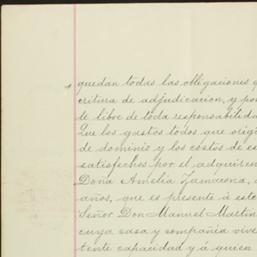 quedan todas las obligaciones q
critura de adjudicacion, y por
te libre de toda responsabilida
Que los gastos todos que origi
de dominio y los costos de es
satisfechos por el adquiren
Doña Amelia Zamacona,
años, que es presente á este
Señor Don Manuel Martin
cuya casa y compañia vive
tente capacidad y á quien